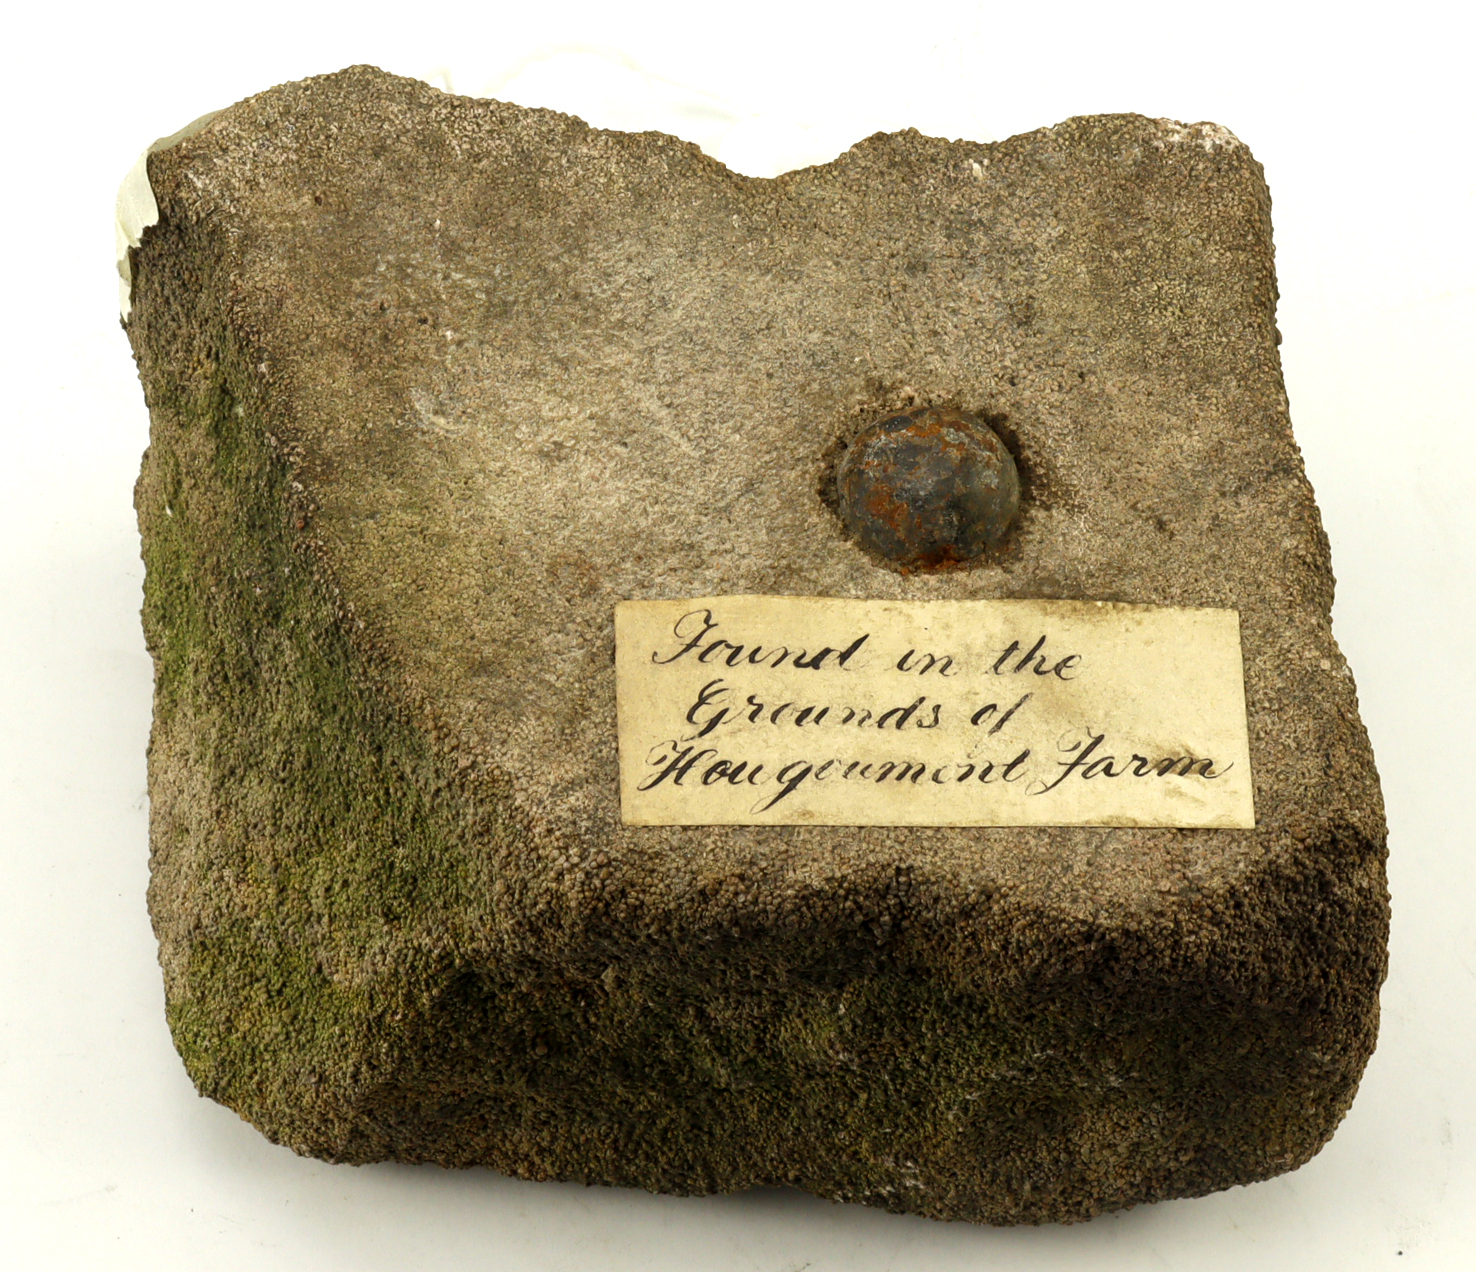 Found in the
Grounds of
Hougoument Farm